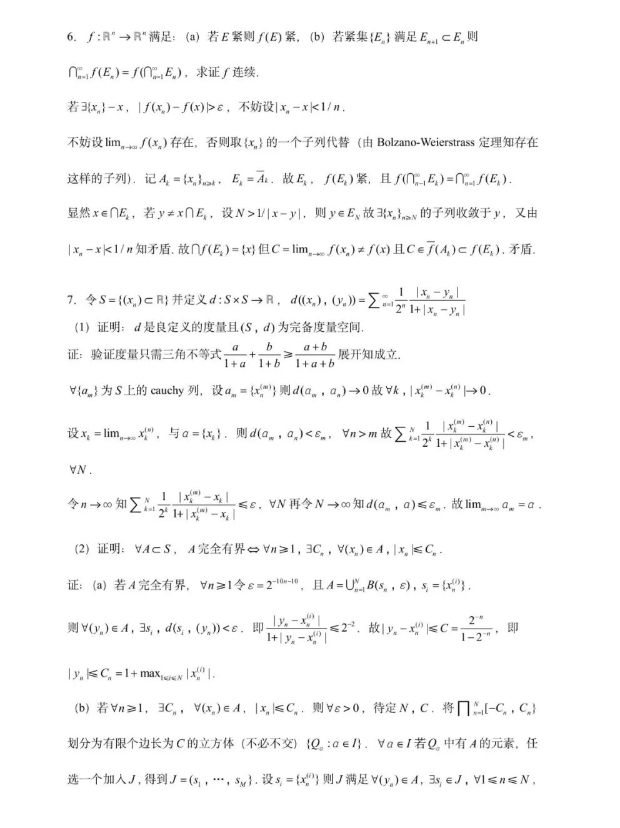 6. f : ℝⁿ → ℝⁿ 满足: (a) 若 E 紧则 f(E) 紧, (b) 若紧集{Eₙ} 满足 Eₙ₊₁ ⊂ Eₙ 则
⋂ₙ₌₁^∞ f(Eₙ) = f(⋂ₙ₌₁^∞ Eₙ), 求证 f 连续.
若 ∃{xₙ} − x, | f(xₙ) − f(x)|> ε, 不妨设| xₙ − x|< 1/ n.
不妨设 limₙ→∞ f(xₙ) 存在, 否则取{xₙ} 的一个子列代替 (由 Bolzano-Weierstrass 定理知存在
这样的子列). 记 Aₖ = {xₙ}ₙ≥ₖ, Eₖ = A̅ₖ. 故 Eₖ, f(Eₖ) 紧, 且 f(⋂ₙ₌₁^∞ Eₖ) = ⋂ₙ₌₁^∞ f(Eₖ).
显然 x ∈ ⋂Eₖ, 若 y ≠ x⋂Eₖ, 设 N > 1/| x − y|, 则 y ∈ Eₙ 故 ∃{xₙ}ₙ≥N 的子列收敛于 y, 又由
| xₙ − x|< 1/ n 知矛盾. 故⋂f(Eₖ) = {x} 但 C = limₙ→∞ f(xₙ) ≠ f(x) 且 C ∈ f̅(Aₖ) ⊂ f(Eₖ). 矛盾.
7. 令 S = {(xₙ) ⊂ ℝ} 并定义 d : S × S → ℝ, d((xₙ), (yₙ)) = ∑ₙ₌₁^∞ 1/2ⁿ | xₙ − yₙ |/(1+ | xₙ − yₙ |)
(1) 证明: d 是良定义的度量且(S, d) 为完备度量空间.
证: 验证度量只需三角不等式 a/(1+a) + b/(1+b) ≥ (a+b)/(1+a+b) 展开知成立.
∀{aₘ} 为 S 上的 cauchy 列, 设 aₘ = {xₖ^(m)} 则 d(aₘ, aₙ) → 0 故 ∀k, | xₖ^(m) − xₖ^(n) |→ 0.
设 xₖ = limₙ→∞ xₖ^(n), 与 a = {xₖ}. 则 d(aₘ, aₙ) < εₘ, ∀n > m 故 ∑ₖ₌₁^N 1/2ᵏ | xₖ^(m) − xₖ^(n) |/(1+ | xₖ^(m) − xₖ^(n) |) < εₘ,
∀N.
令 n → ∞ 知 ∑ₖ₌₁^N 1/2ᵏ | xₖ^(m) − xₖ |/(1+ | xₖ^(m) − xₖ |) ≤ ε, ∀N 再令 N → ∞ 知 d(aₘ, a) ≤ εₘ. 故 limₘ→∞ aₘ = a.
(2) 证明: ∀A ⊂ S, A 完全有界 ⇔ ∀n ≥ 1, ∃Cₙ, ∀(xₙ) ∈ A, | xₙ |≤ Cₙ.
证: (a) 若 A 完全有界, ∀n ≥ 1 令 ε = 2^(−10n−10), 且 A = ⋃ₙ₌₁^N B(sₙ, ε), sᵢ = {xₙ^(i)}.
则 ∀(yₙ) ∈ A, ∃sᵢ, d(sᵢ, (yₙ)) < ε. 即 | yₙ − xₙ^(i) |/(1+ | yₙ − xₙ^(i) |) ≤ 2⁻². 故| yₙ − xₙ^(i) |≤ C = 2⁻ⁿ/(1 − 2⁻ⁿ), 即
| yₙ |≤ Cₙ = 1 + max₁≤ᵢ≤N | xₙ^(i) |.
(b) 若 ∀n ≥ 1, ∃Cₙ, ∀(xₙ) ∈ A, | xₙ |≤ Cₙ. 则 ∀ε > 0, 待定 N, C. 将 ∏ₙ₌₁^N [−Cₙ, Cₙ}
划分为有限个边长为 C 的立方体 (不必不交) {Qₐ : a ∈ I}. ∀a ∈ I 若 Qₐ 中有 A 的元素, 任
选一个加入 J, 得到 J = (s₁, ⋯, s_M}. 设 sᵢ = {xₙ^(i)} 则 J 满足 ∀(yₙ) ∈ A, ∃sᵢ ∈ J, ∀1 ≤ n ≤ N,